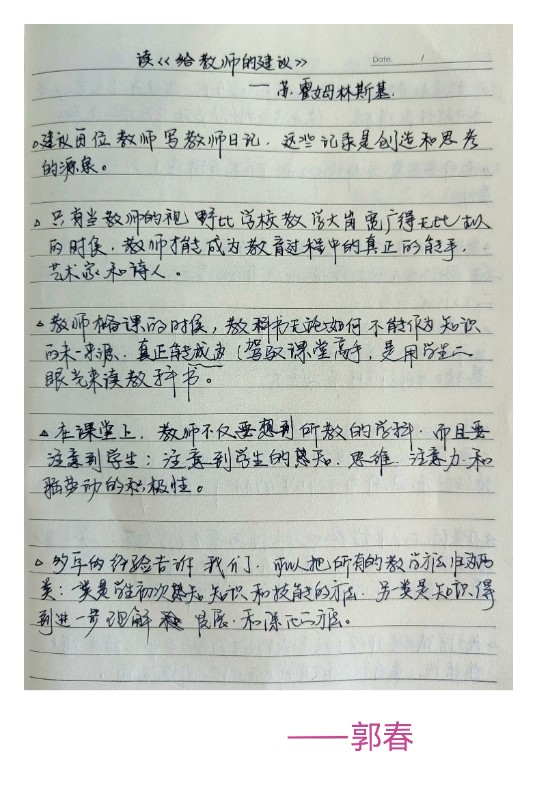 读《给教师的建议》
Date. /
— 苏.霍姆林斯基.
建议每位教师写教师日记，这些记录是创造和思考
的源泉。
△ 只有当教师的视野比学校教学大岗宽广得无比拟
的时侯，教师才能成为教育过程中的真正的能手，
艺术家和诗人。
△ 教师在备课的时侯，教科书无论如何不能作为知识
的来源，真正能成为驾驭课堂高手，是用学生
眼光来读教科书。
△ 在课堂上，教师不仅要想到所教的学科，而且要
注意到学生：注意到学生的感知、思维、注意力和
脑劳动的积极性。
△ 多年的经验告诉我们，可以把所有的教学方法归为两
类：一类是学生初次感知知识和技能的方法，另一类是知识得
到进一步理解 发展、和深化的方法。
——郭春